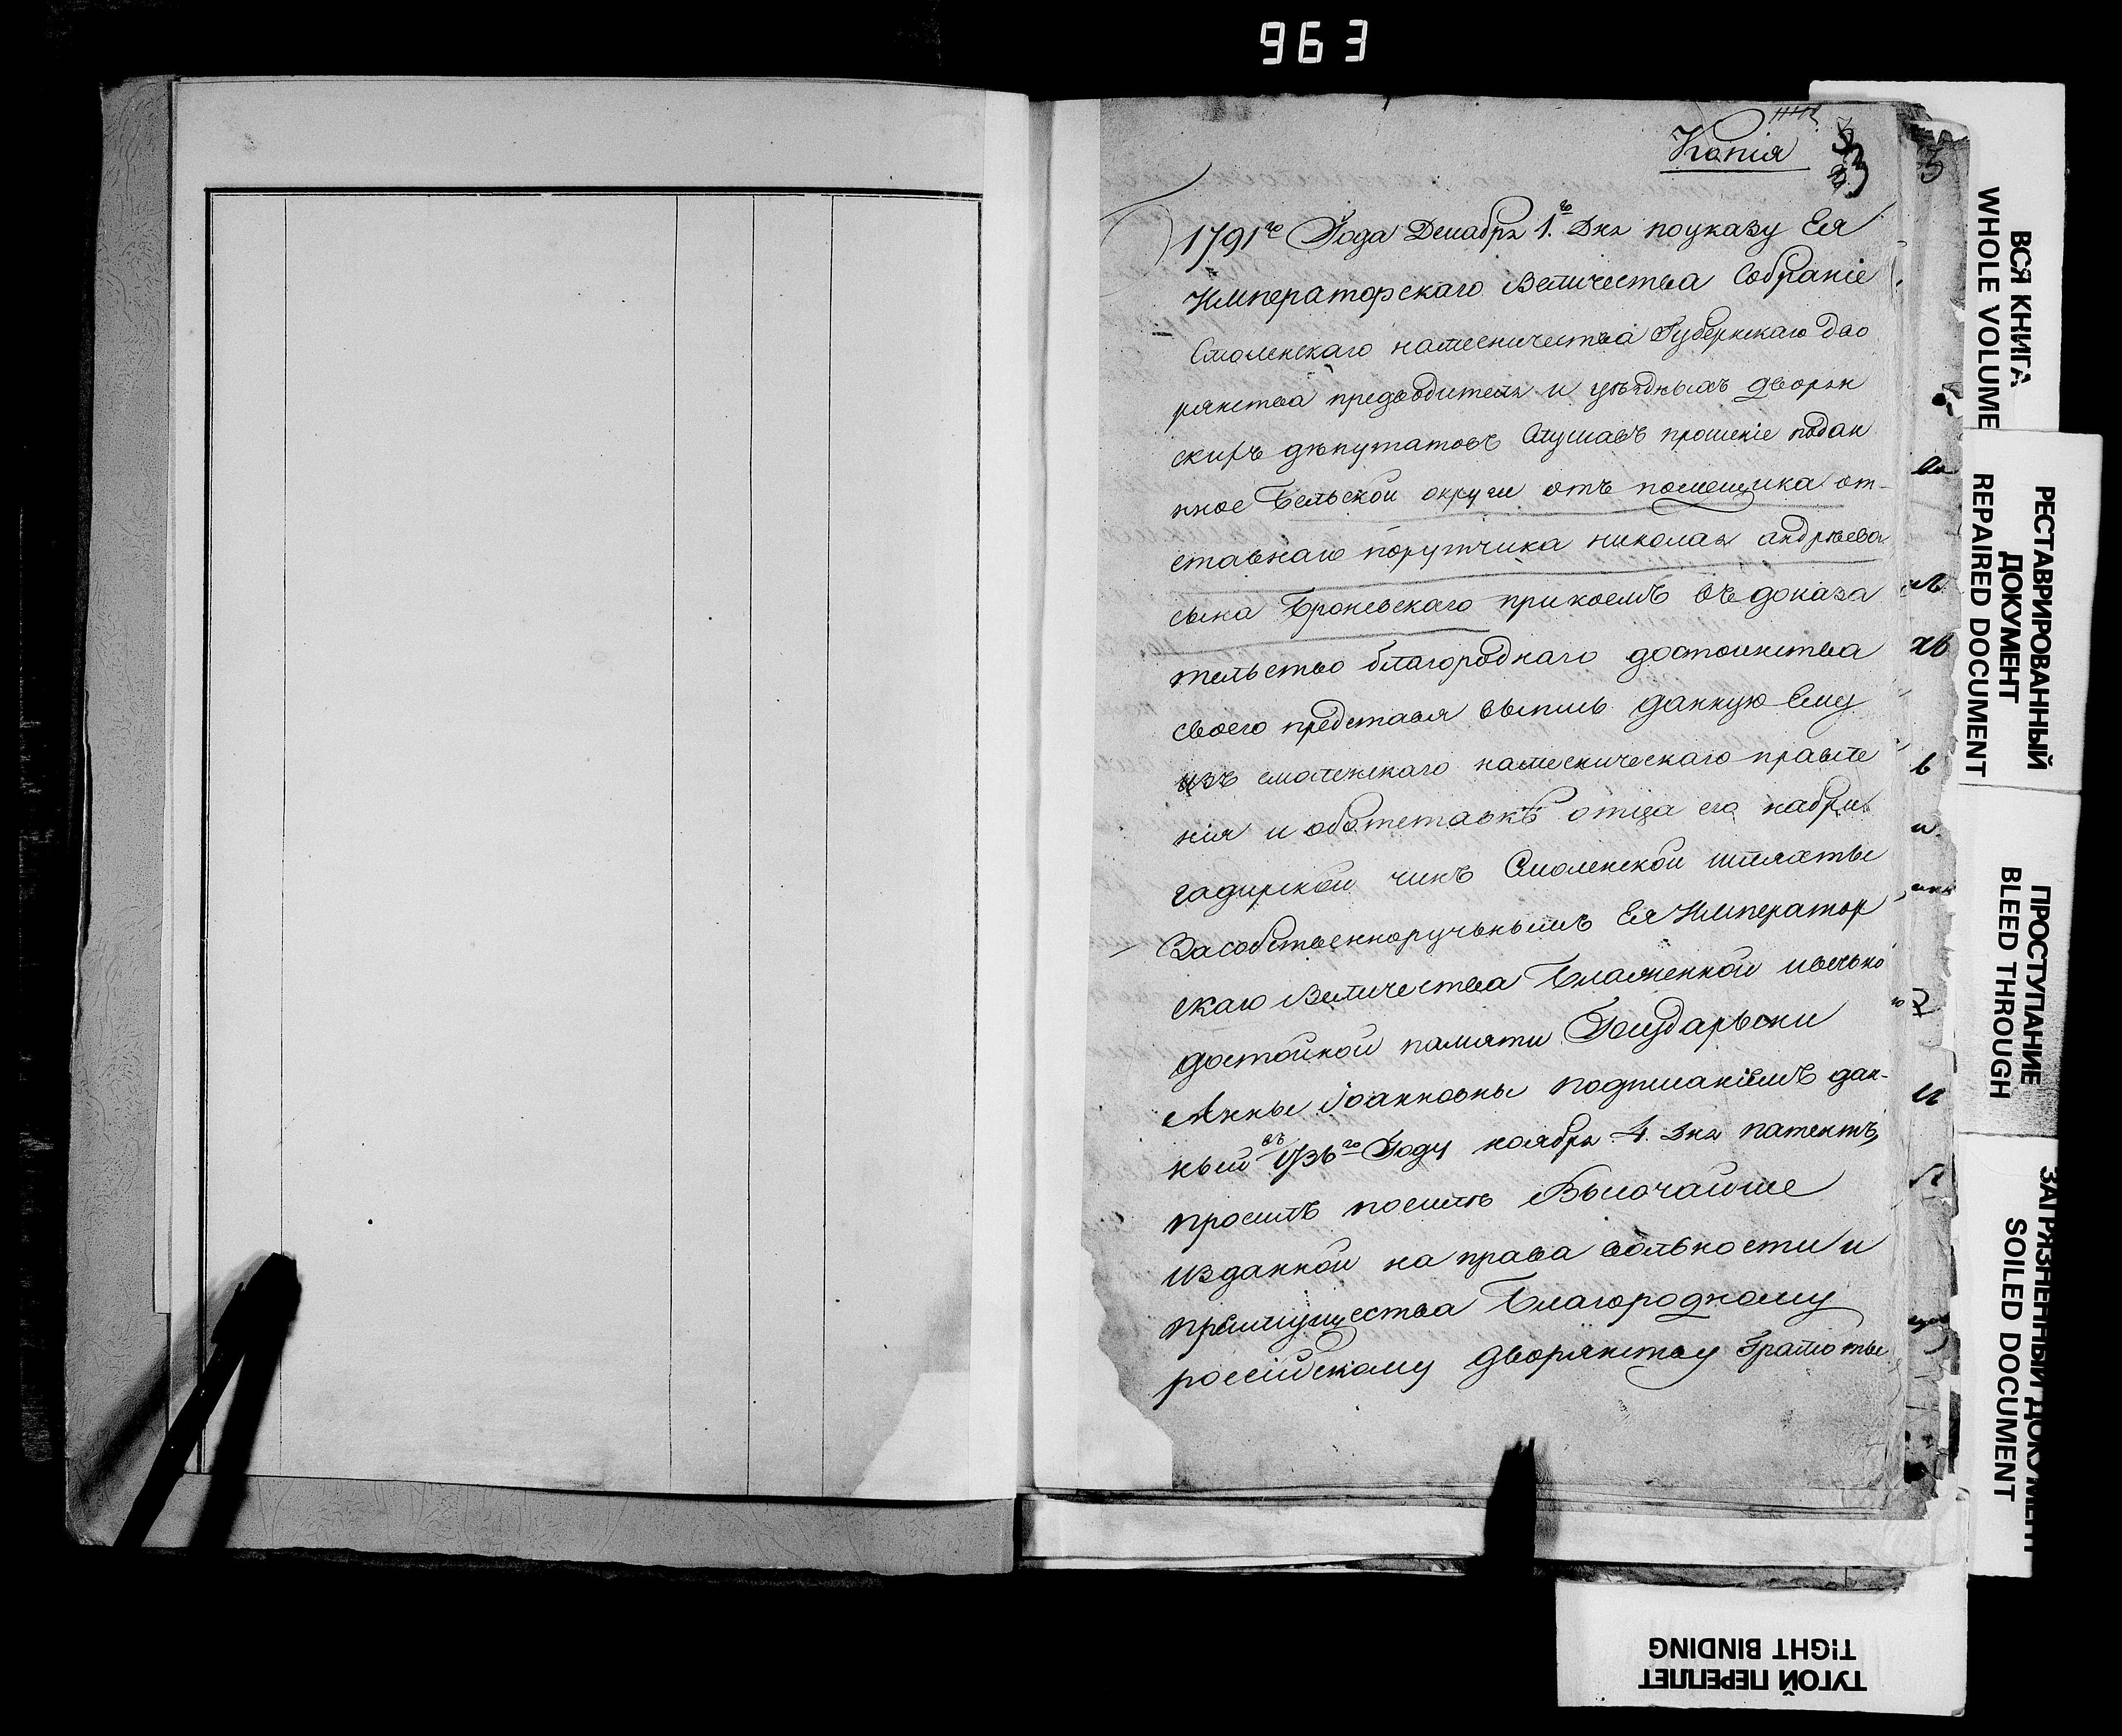 963
Копія
3
1791го Года Декабря 1.го Дня поуказу Ея
Императорскаго Величества Собраніе
Смоленскаго наместничества Губернскаго дво
рянства предводителя и уѣздныхъ дворян
скихъ дѣпутатовъ Слушавъ прошеніе подан
ное Бельской округи отъ помещика от-
ставнаго порутчика николая андрѣева
сына Броневскаго прикоемъ въ доказа
тельство благороднаго достоинства
своего представя выпись данную Ему
изъ смоленскаго наместническаго правле
нія и обатетавкѣ отца его набри
гадирской чинъ Смоленской шляхты
Засобственноручьнымъ Ея Император
скаго Величества Блаженной ивечьно
достойной памяти Государыни
Анны Іоанновны подписаніемъ дан-
ный въ 1736го Году ноября 4. дня патентъ,
проситъ посилѣ Высочайше
изданной на права вольности и
преимущества Благородному
россійскому дворянству Грамоты
ВСЯ КНИГА
WHOLE VOLUME
РЕСТАВРИРОВАННЫЙ
ДОКУМЕНТ
REPAIRED DOCUMENT
ПРОСТУПАНИЕ
BLEED THROUGH
ЗАГРЯЗНЕННЫЙ ДОКУМЕНТ
SOILED DOCUMENT
ТУГОЙ ПЕРЕПЛЕТ
TIGHT BINDING